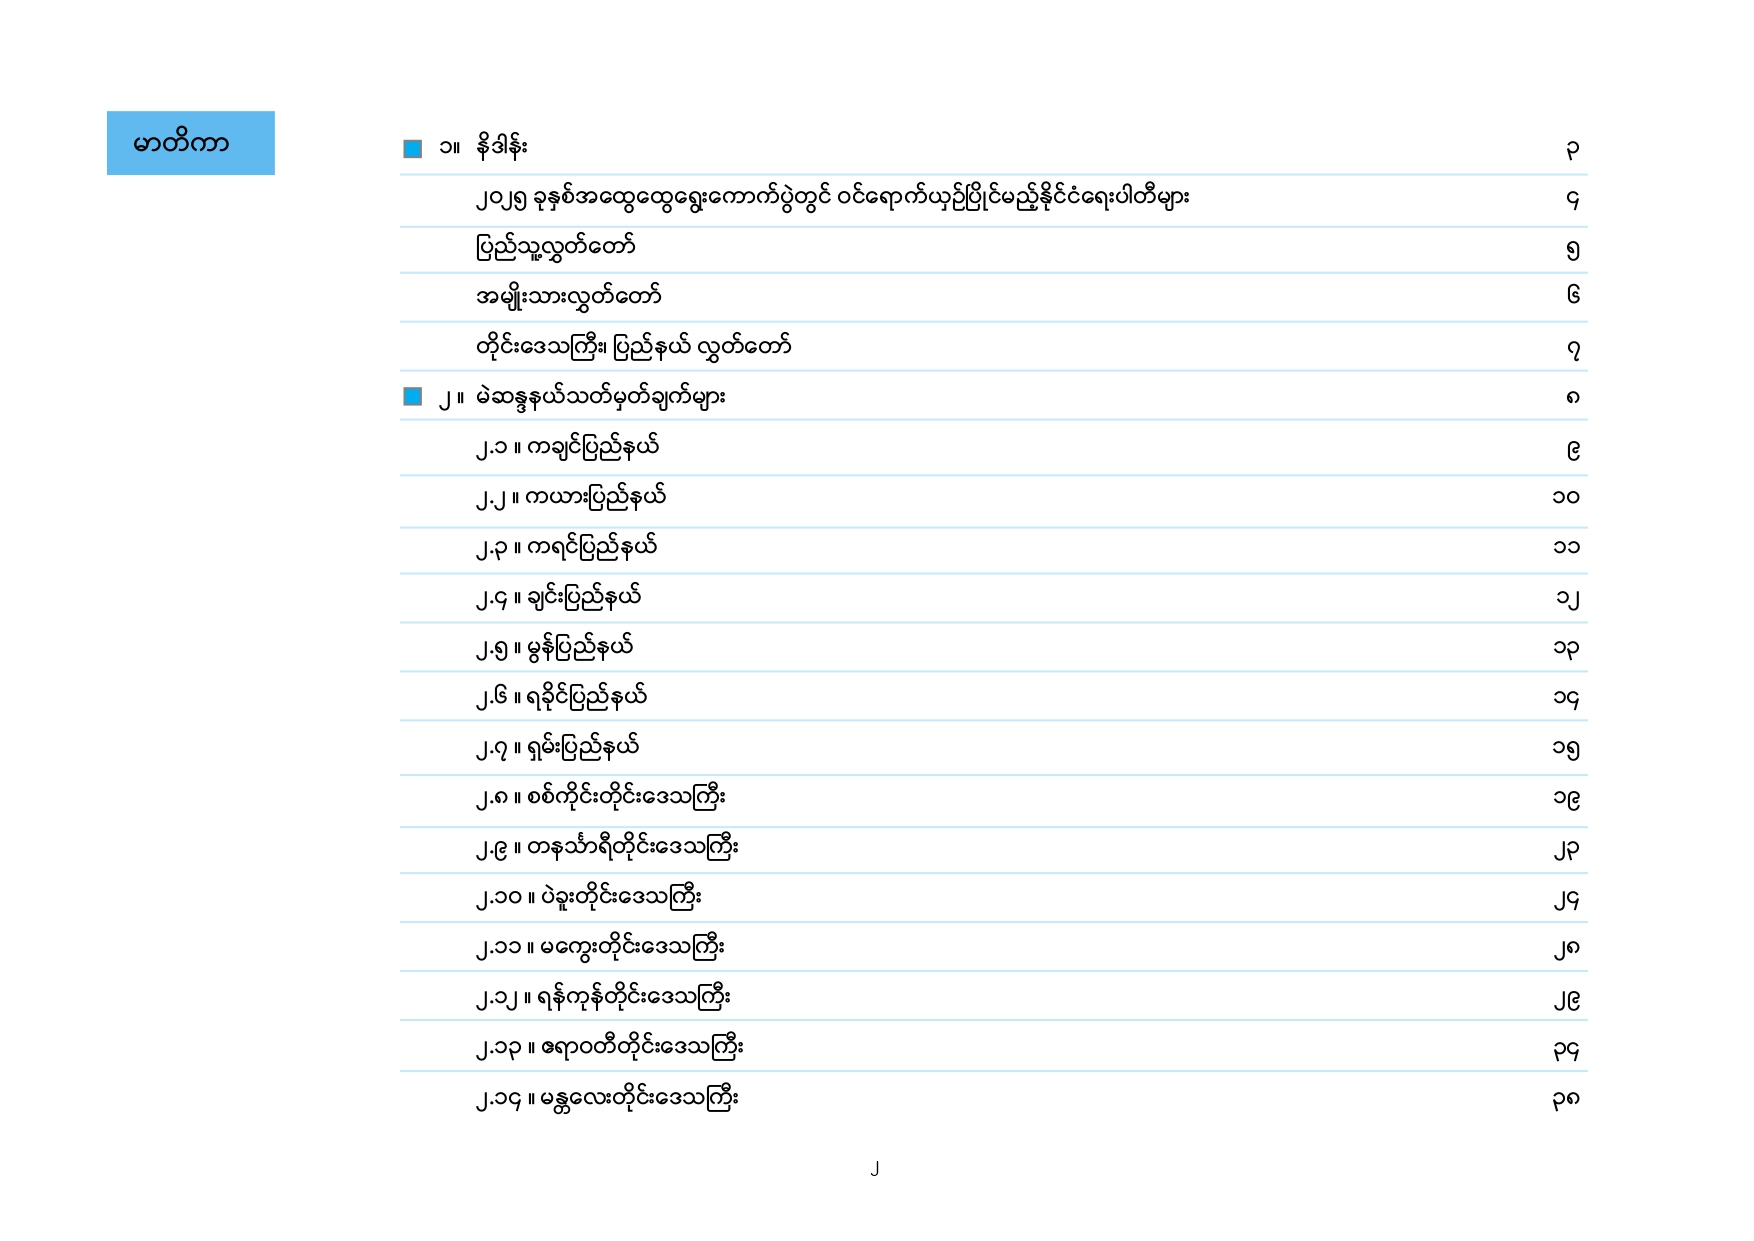 မာတိကာ
၁။ နိဒါန်း ၃
၂၀၂၅ ခုနှစ်အထွေထွေရွေးကောက်ပွဲတွင် ဝင်ရောက်ယှဉ်ပြိုင်မည့်နိုင်ငံရေးပါတီများ ၄
ပြည်သူ့လွှတ်တော် ၅
အမျိုးသားလွှတ်တော် ၆
တိုင်းဒေသကြီး၊ ပြည်နယ် လွှတ်တော် ၇
၂ ။ မဲဆန္ဒနယ်သတ်မှတ်ချက်များ ၈
၂.၁ ။ ကချင်ပြည်နယ် ၉
၂.၂ ။ ကယားပြည်နယ် ၁၀
၂.၃ ။ ကရင်ပြည်နယ် ၁၁
၂.၄ ။ ချင်းပြည်နယ် ၁၂
၂.၅ ။ မွန်ပြည်နယ် ၁၃
၂.၆ ။ ရခိုင်ပြည်နယ် ၁၄
၂.၇ ။ ရှမ်းပြည်နယ် ၁၅
၂.၈ ။ စစ်ကိုင်းတိုင်းဒေသကြီး ၁၉
၂.၉ ။ တနင်္သာရီတိုင်းဒေသကြီး ၂၃
၂.၁၀ ။ ပဲခူးတိုင်းဒေသကြီး ၂၄
၂.၁၁ ။ မကွေးတိုင်းဒေသကြီး ၂၈
၂.၁၂ ။ ရန်ကုန်တိုင်းဒေသကြီး ၂၉
၂.၁၃ ။ ဧရာဝတီတိုင်းဒေသကြီး ၃၄
၂.၁၄ ။ မန္တလေးတိုင်းဒေသကြီး ၃၈
၂